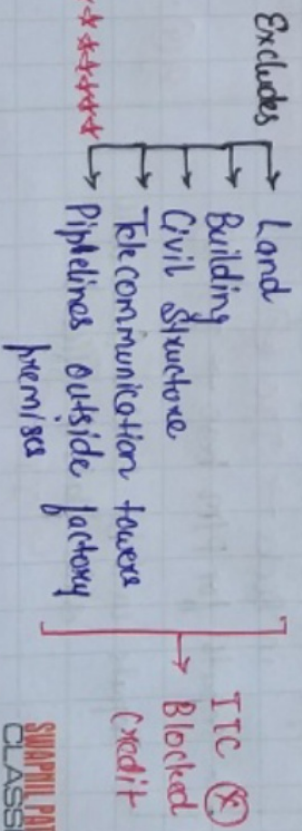 Excludes
Land
Building
Civil Structure
Telecommunication towers
Pipelines outside factory
premises
ITC ⓧ
Blocked
Credit
SWAPNIL PAT
CLASS